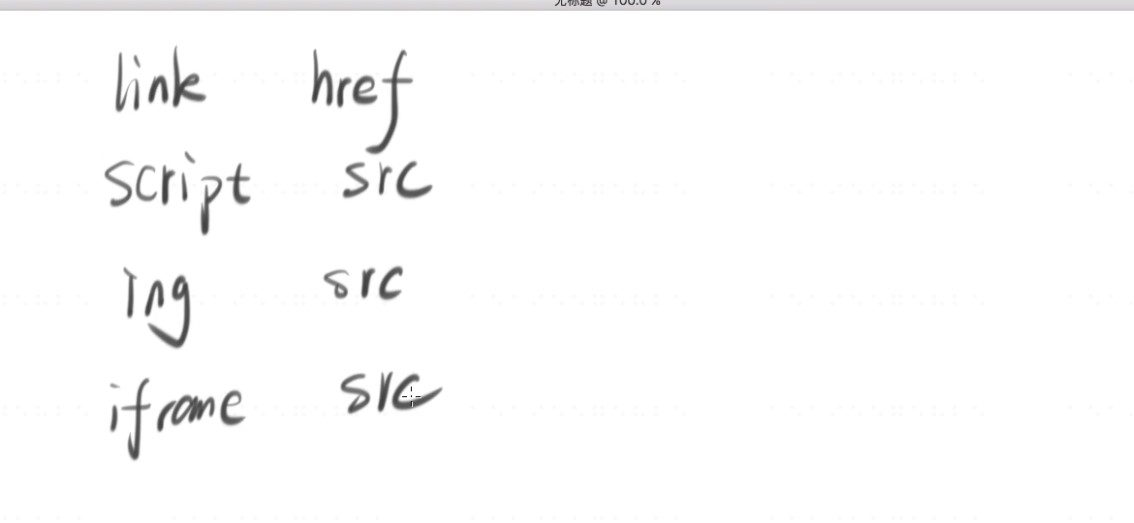 无标题 @ 100.0 %
link href
script src
ing src
iframe src